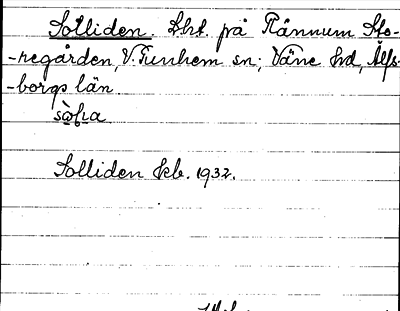 Solliden. Lht. på Rånnum Sto-
-regården, V. Tunhem sn; Väne hd, Älfs-
-borgs län.
Solliden kb. 1932.